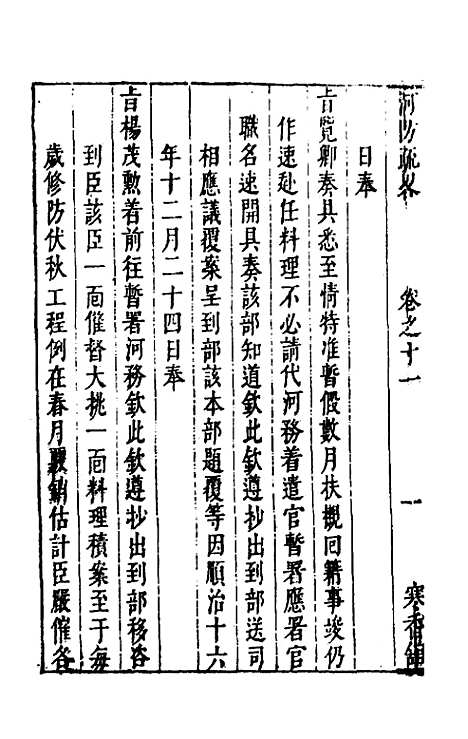 河防疏畧
卷之十一
一
日奉
旨覽卿奏具悉至情特准暫假數月扶櫬回籍事竣仍
作速赴任料理不必請代河務着遣官暫署應署官
職名速開具奏該部知道欽此欽遵抄出到部送司
相應議覆案呈到部該本部題覆等因順治十六
年十二月二十四日奉
旨楊茂勳着前往暫署河務欽此欽遵抄出到部移咨
到臣該臣一面催督大挑一面料理積案至于每
歲修防伏秋工程例在春月估計臣嚴催各